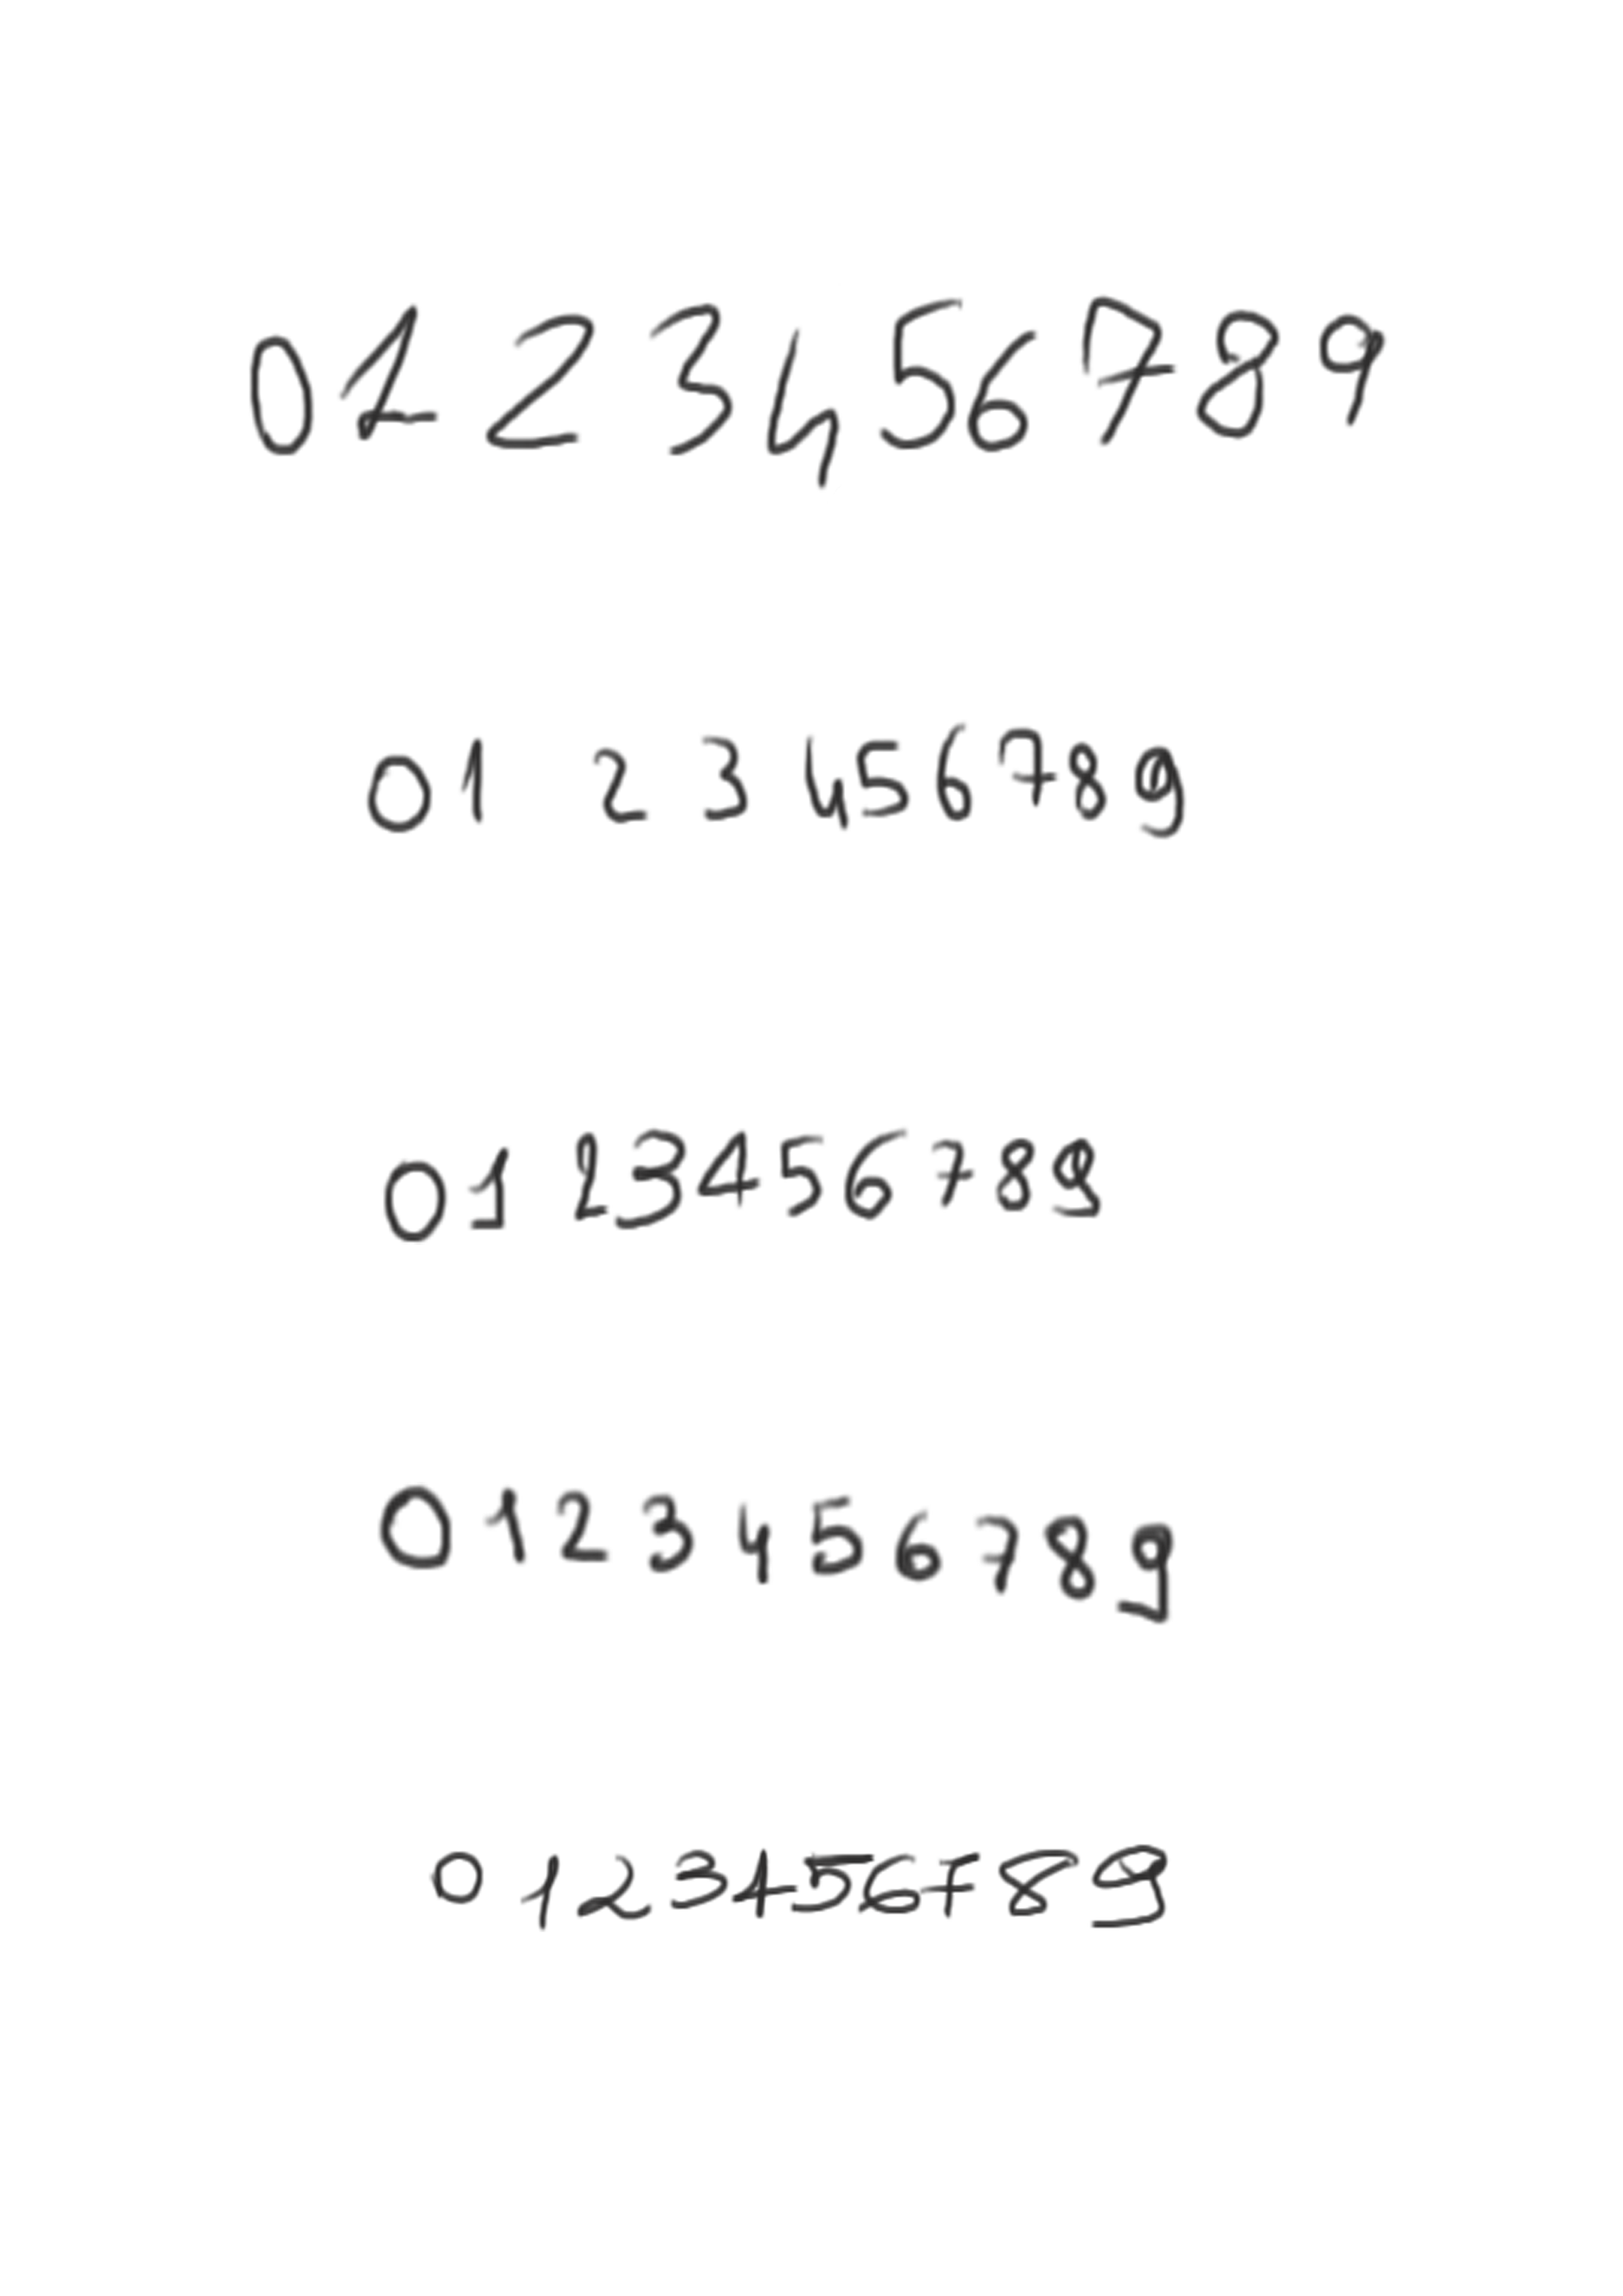 0123456789
01 23456789
01 23456789
0123456789
0123456789